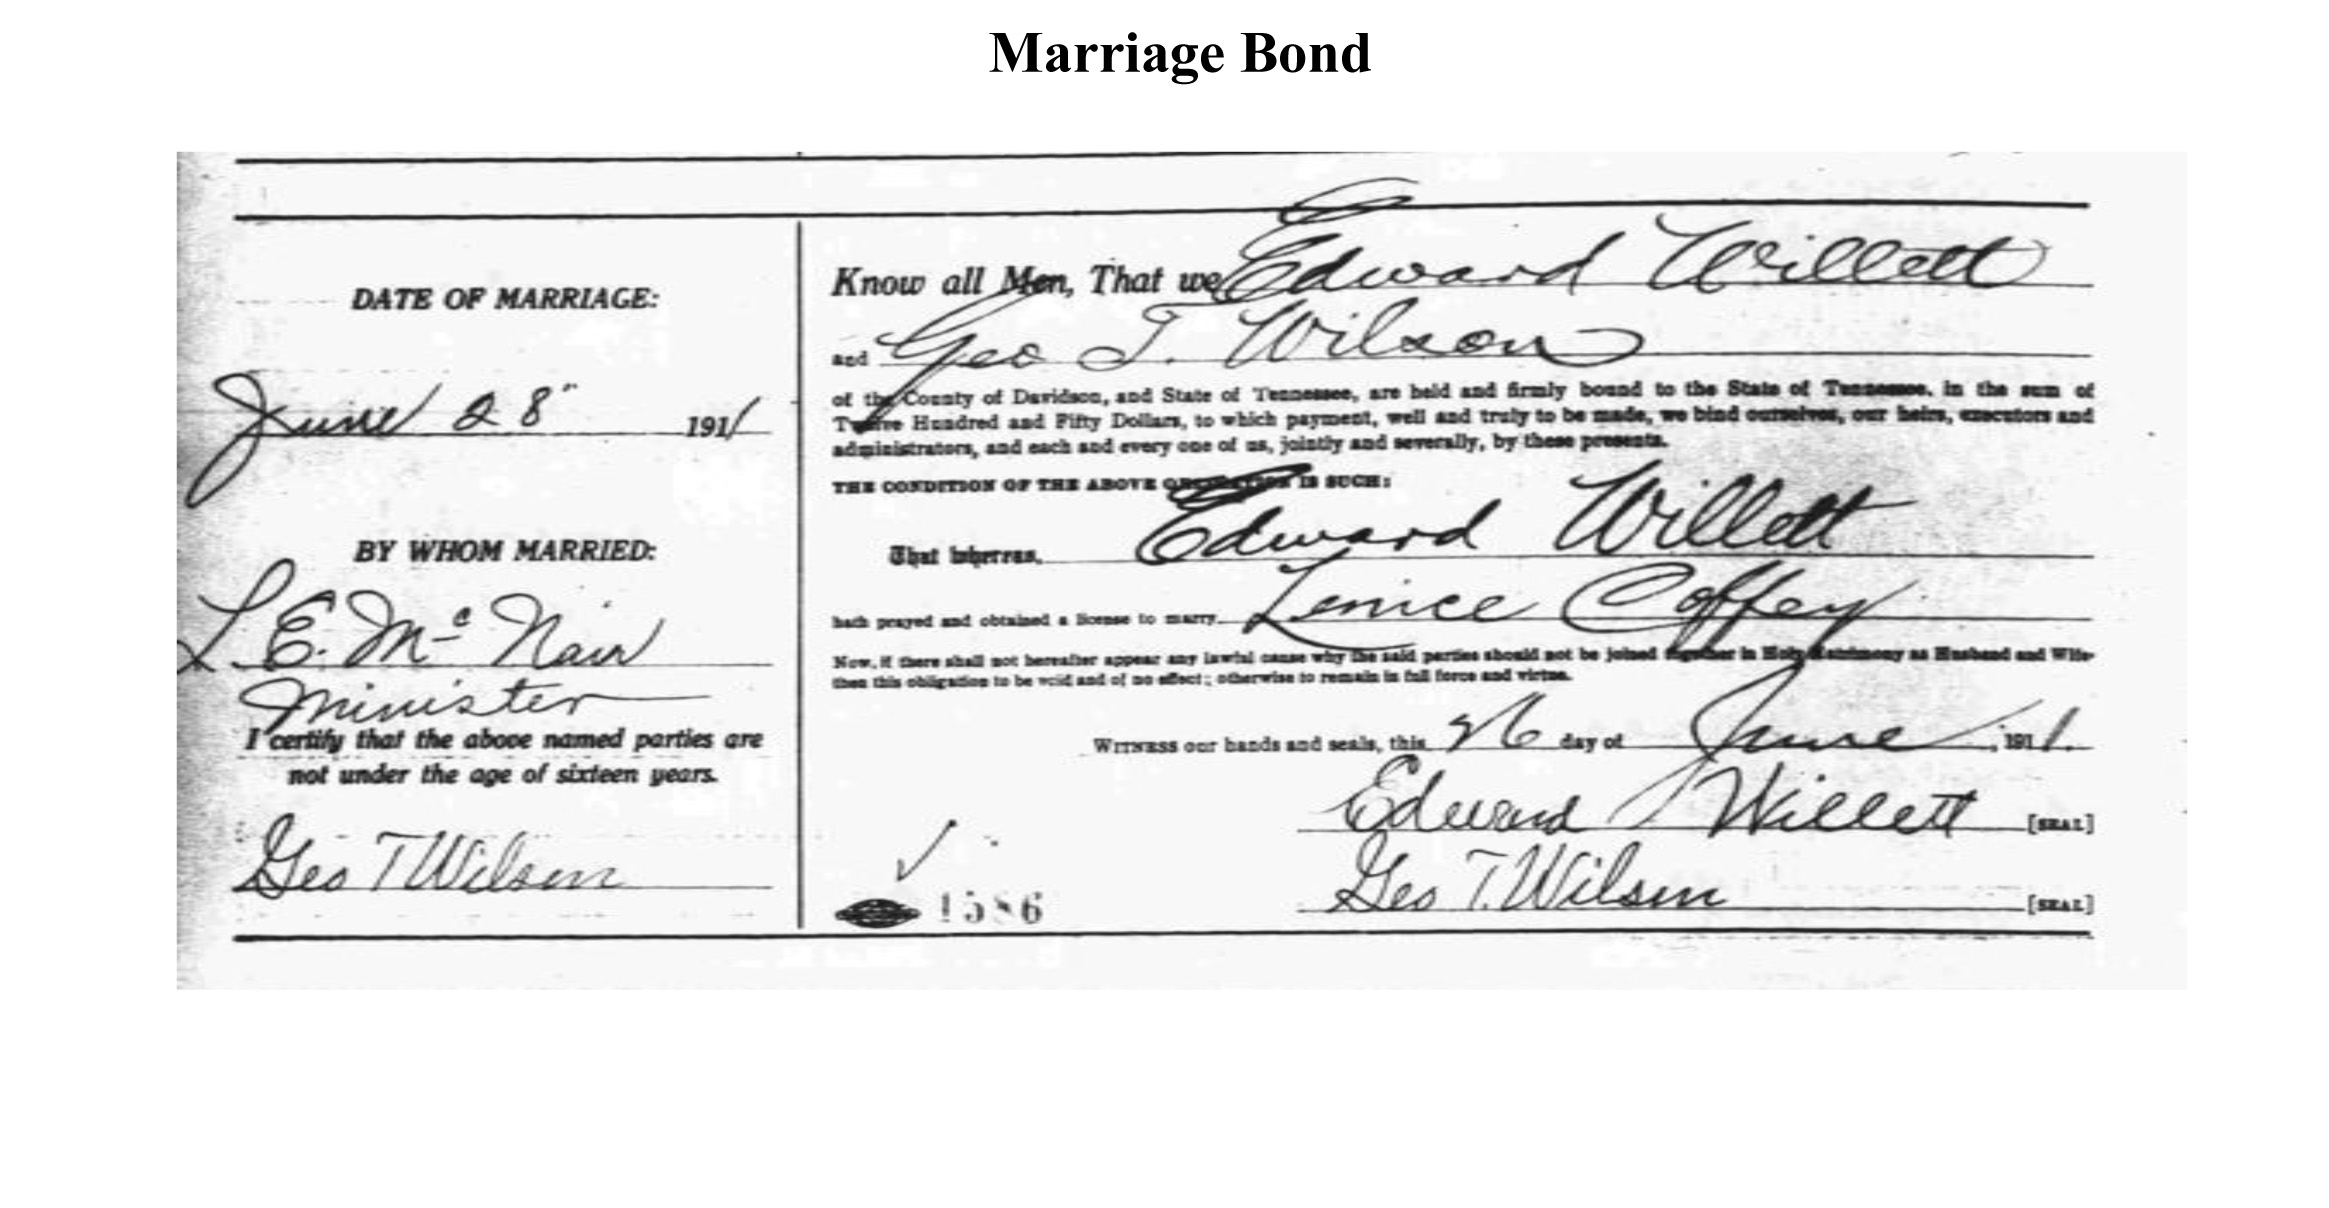 Marriage Bond
DATE OF MARRIAGE:
June 28" 1911
BY WHOM MARRIED:
L. E. Mc Nair
Minister
I certify that the above named parties are
not under the age of sixteen years.
Geo T Wilson
Know all Men, That we Edward Willett
and Geo T. Wilson
of the County of Davidson, and State of Tennessee, are held and firmly bound to the State of Tennessee, in the sum of
Twelve Hundred and Fifty Dollars, to which payment, well and truly to be made, we bind ourselves, our heirs, executors and
administrators, and each and every one of us, jointly and severally, by these presents.
THE CONDITION OF THE ABOVE OBLIGATION IS SUCH:
That whereas, Edward Willett
hath prayed and obtained a license to marry Lenice Coffey
Now, if there shall not hereafter appear any lawful cause why the said parties should not be joined together in Holy Matrimony as Husband and Wife
then this obligation to be void and of no effect; otherwise to remain in full force and virtue.
WITNESS our hands and seals, this 26 day of June, 1911.
Edward Willett [SEAL]
Geo T. Wilson [SEAL]